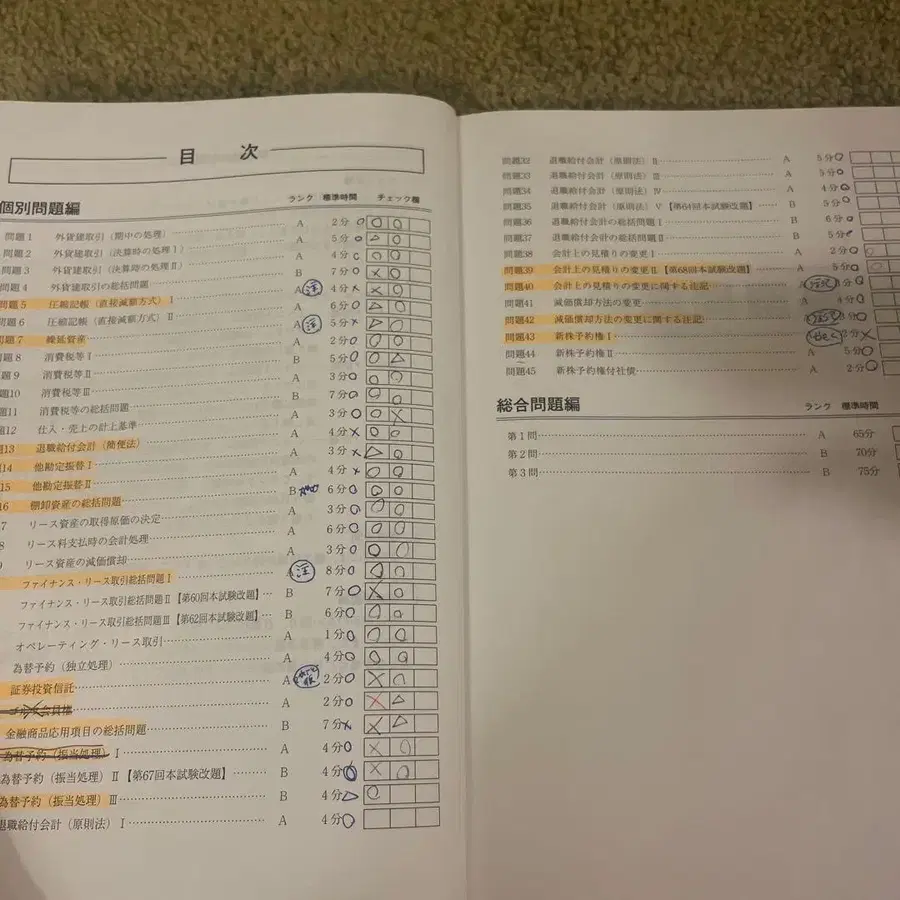 目 次
個別問題編 ランク 標準時間 チェック欄
問題1 外貨建取引（期中の処理） A 2分
問題2 外貨建取引（決算時の処理Ⅰ） A 5分
問題3 外貨建取引（決算時の処理Ⅱ） A 4分
問題4 外貨建取引の総括問題 B 7分
問題5 圧縮記帳（直接減額方式）Ⅰ A 注 4分
問題6 圧縮記帳（直接減額方式）Ⅱ A 6分
問題7 繰延資産 A 注 5分
問題8 消費税等Ⅰ A 2分
題9 消費税等Ⅱ B 5分
題10 消費税等Ⅲ A 3分
題11 消費税等の総括問題 B 7分
題12 仕入・売上の計上基準 A 3分
題13 退職給付会計（簡便法） A 4分
14 他勘定振替Ⅰ A 3分
15 他勘定振替Ⅱ A 4分
16 棚卸資産の総括問題 B 6分
7 リース資産の取得原価の決定 A 3分
8 リース料支払時の会計処理 A 6分
9 リース資産の減価償却 A 3分
ファイナンス・リース取引総括問題Ⅰ A 注 8分
ファイナンス・リース取引総括問題Ⅱ【第60回本試験改題】 B 7分
ファイナンス・リース取引総括問題Ⅲ【第62回本試験改題】 B 6分
オペレーティング・リース取引 A 1分
為替予約（独立処理） A 4分
証券投資信託 A 2分
ゴルフ会員権 A 2分
金融商品応用項目の総括問題 B 7分
為替予約（振当処理）Ⅰ A 4分
為替予約（振当処理）Ⅱ【第67回本試験改題】 B 4分
為替予約（振当処理）Ⅲ B 4分
退職給付会計（原則法）Ⅰ A 4分
問題32 退職給付会計（原則法）Ⅱ A 5分
問題33 退職給付会計（原則法）Ⅲ A 5分
問題34 退職給付会計（原則法）Ⅳ A 4分
問題35 退職給付会計（原則法）Ⅴ【第64回本試験改題】 B 5分
問題36 退職給付会計の総括問題Ⅰ B 6分
問題37 退職給付会計の総括問題Ⅱ B 5分
問題38 会計上の見積りの変更Ⅰ A 2分
問題39 会計上の見積りの変更Ⅱ【第68回本試験改題】 A 5分
問題40 会計上の見積りの変更に関する注記 A 3分
問題41 減価償却方法の変更 A 4分
問題42 減価償却方法の変更に関する注記 3分
問題43 新株予約権Ⅰ 2分
問題44 新株予約権Ⅱ A 5分
問題45 新株予約権付社債 A 2分
総合問題編 ランク 標準時間
第1問 A 65分
第2問 B 70分
第3問 B 75分